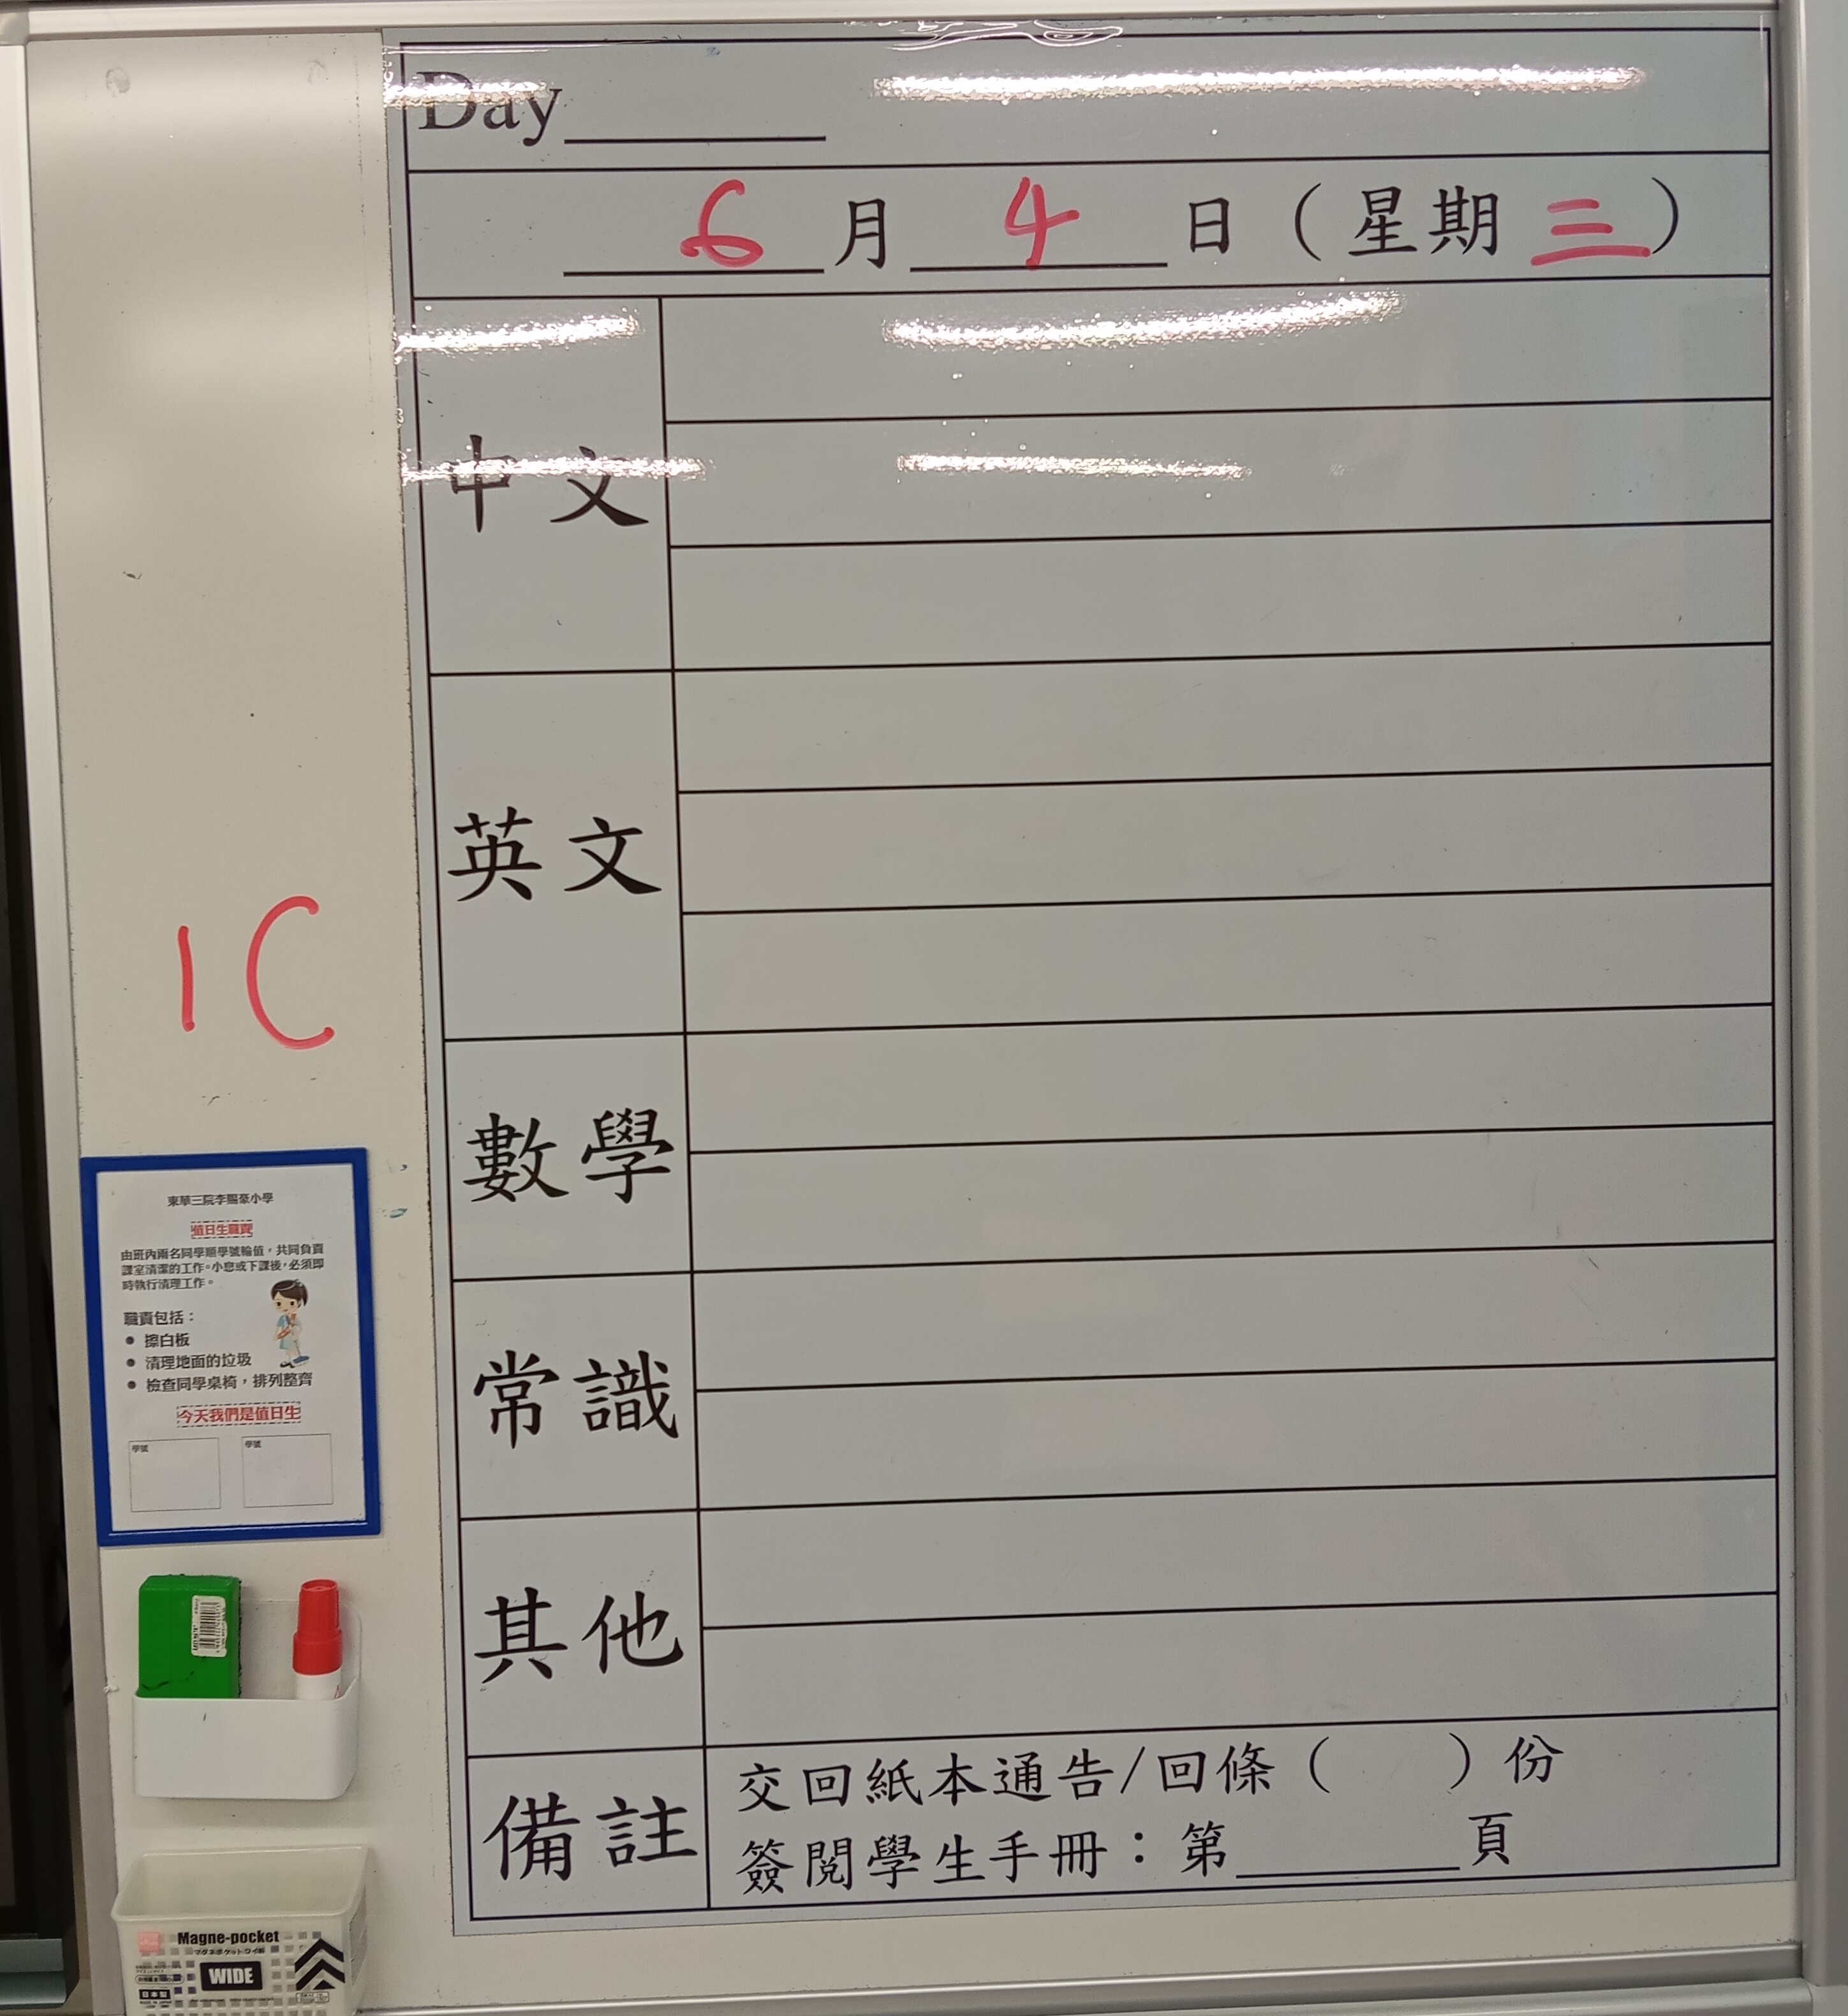 Day
6月4日（星期三）
中文
英文
數學
常識
其他
備註
交回紙本通告/回條（　　）份
簽閱學生手冊：第　　頁
1C
東華三院李賜豪小學
值日生職責
由班內兩名同學順學號輪值，共同負責
課室清潔的工作。小息或下課後，必須即
時執行清理工作。
職責包括：
● 擦白板
● 清理地面的垃圾
● 檢查同學桌椅，排列整齊
今天我們是值日生
學號
學號
Magne-pocket
マグネポケットワイド
WIDE
日本製